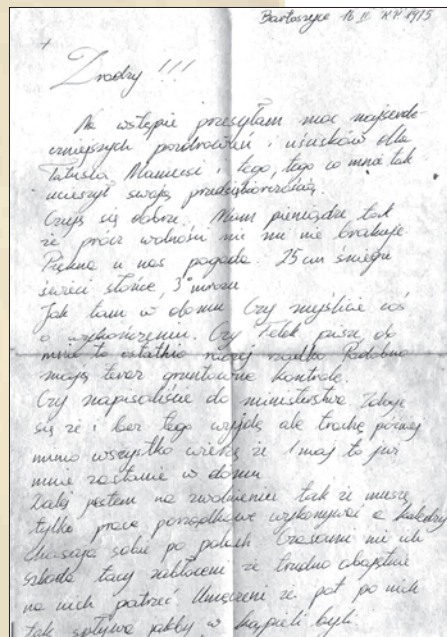 Bartoszyce 16 II 1975
+
Zradzy !!!
Na wstępie przesyłam moc najserde-
czniejszych pozdrowień i uścisków dla
Tatuska, Mamusi i tego, tego co mnie tak
ucieszył swoją przedsiębiorczością.
Czuję się dobrze. Mam pieniądze tak
że prócz wolności nic mi nie brakuje.
Piękna u nas pogoda. 25 cm śniegu
świeci słońce, 3° mrozu.
Jak tam w domu Czy myślicie coś
o wykończeniu. Czy Felek pisze, do
mnie to ostatnio raczej rzadko Podobno
mają teraz gruntowne kontrole.
Czy napisaliście do ministerstwa Zdaje
się że i bez tego wyjdę ale trochę później
mimo wszystko wierzę że 1 maj to już
mnie zastanie w domu
Dalej jestem na zwolnieniu tak że muszę
tylko prace porządkowe wykonywać a koledzy
ganiają sobie po polach Czasami mi ich
szkoda tacy zabłoceni że trudno obojętnie
na nich patrzeć Umęczeni że pot po nich
tak spływa jakby w kąpieli byli.